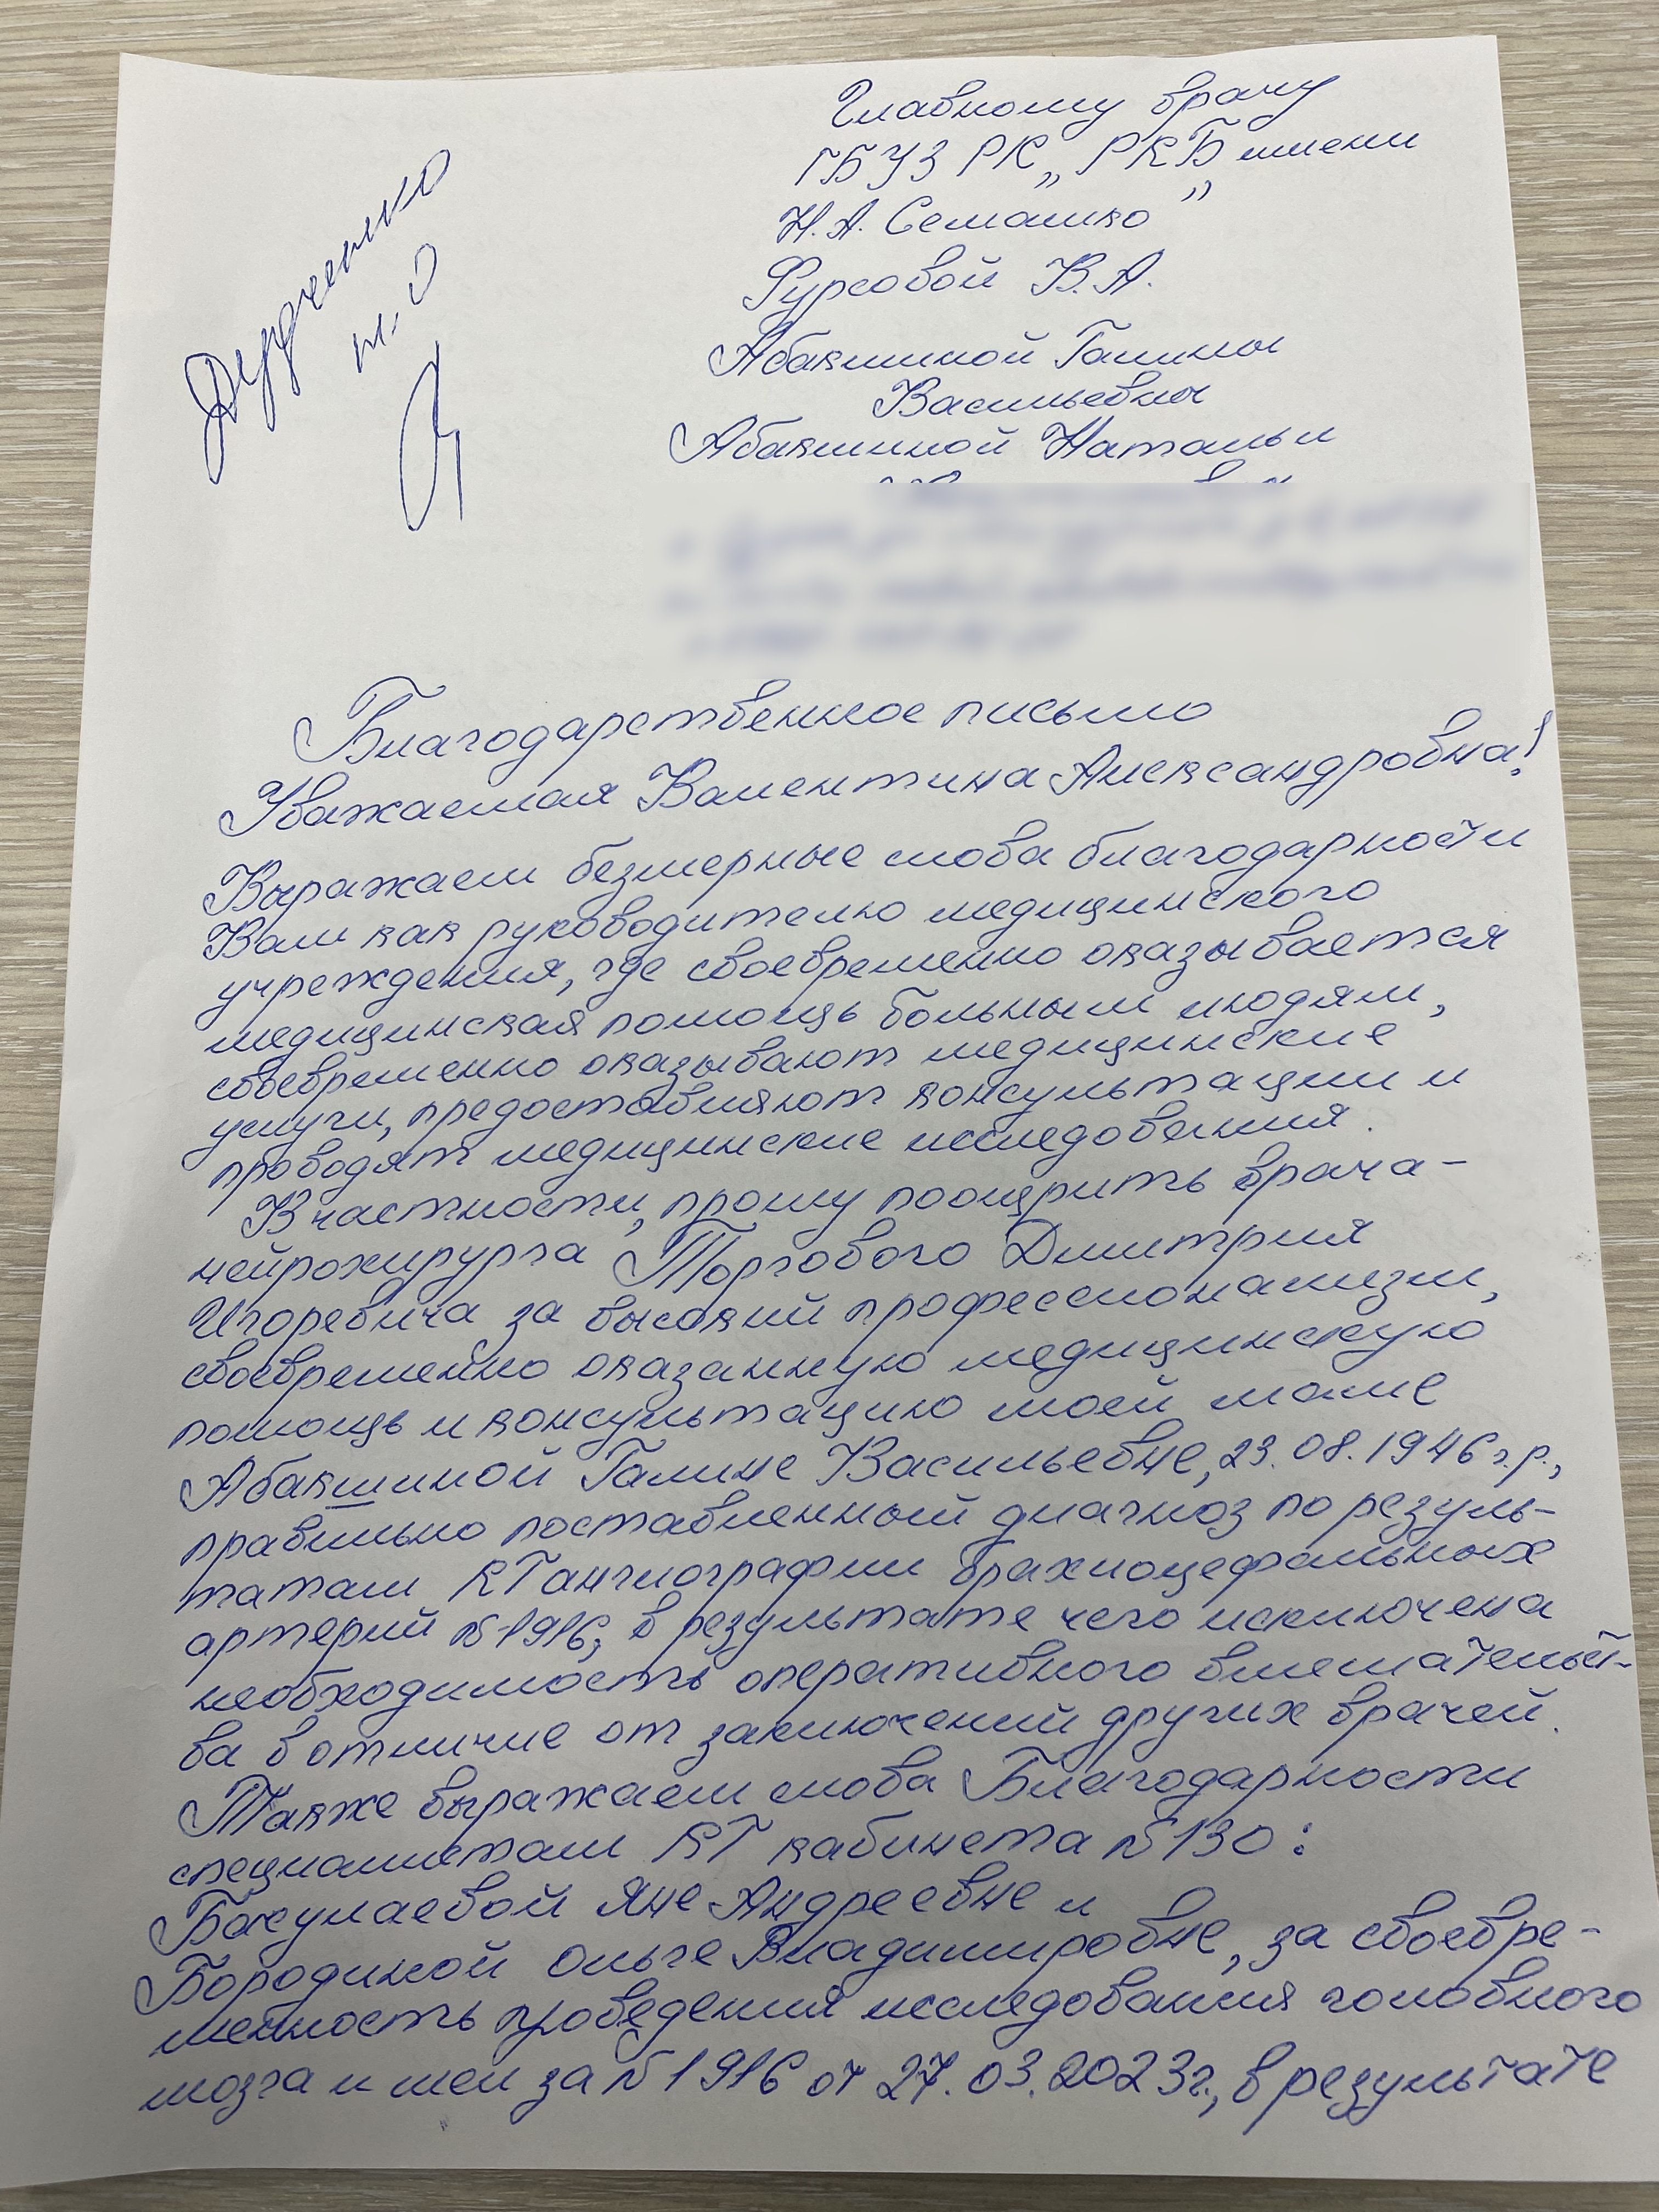 Главному врачу
ГБУЗ РК „РКБ имени
Н.А. Семашко”
Фурсовой В.А.
Абакшиной Галины
Васильевны
Абакшиной Натальи
Дудченко
т. О
Благодарственное письмо
Уважаемая Валентина Александровна!
Выражаем безмерные слова благодарности
Вам как руководителю медицинского
учреждения, где своевременно оказывается
медицинская помощь больным людям,
своевременно оказывают медицинские
услуги, предоставляют консультации и
проводят медицинские исследования.
В частности, прошу поощрить врача-
нейрохирурга Торгового Дмитрия
Игоревича за высокий профессионализм,
своевременно оказанную медицинскую
помощь и консультацию моей маме
Абакшиной Галине Васильевне, 23.08.1946 г.р.,
правильно поставленный диагноз по резуль-
татам КТ ангиографии брахиоцефальных
артерий №1916, в результате чего исключена
необходимость оперативного вмешательст-
ва в отличие от заключений других врачей.
Также выражаем слова Благодарности
специалистам КТ кабинета №130:
Бакулаевой Яне Андреевне и
Бородиной Ольге Владимировне, за своевре-
менность проведения исследования головного
мозга и шеи за №1916 от 27.03.2023г., в результате